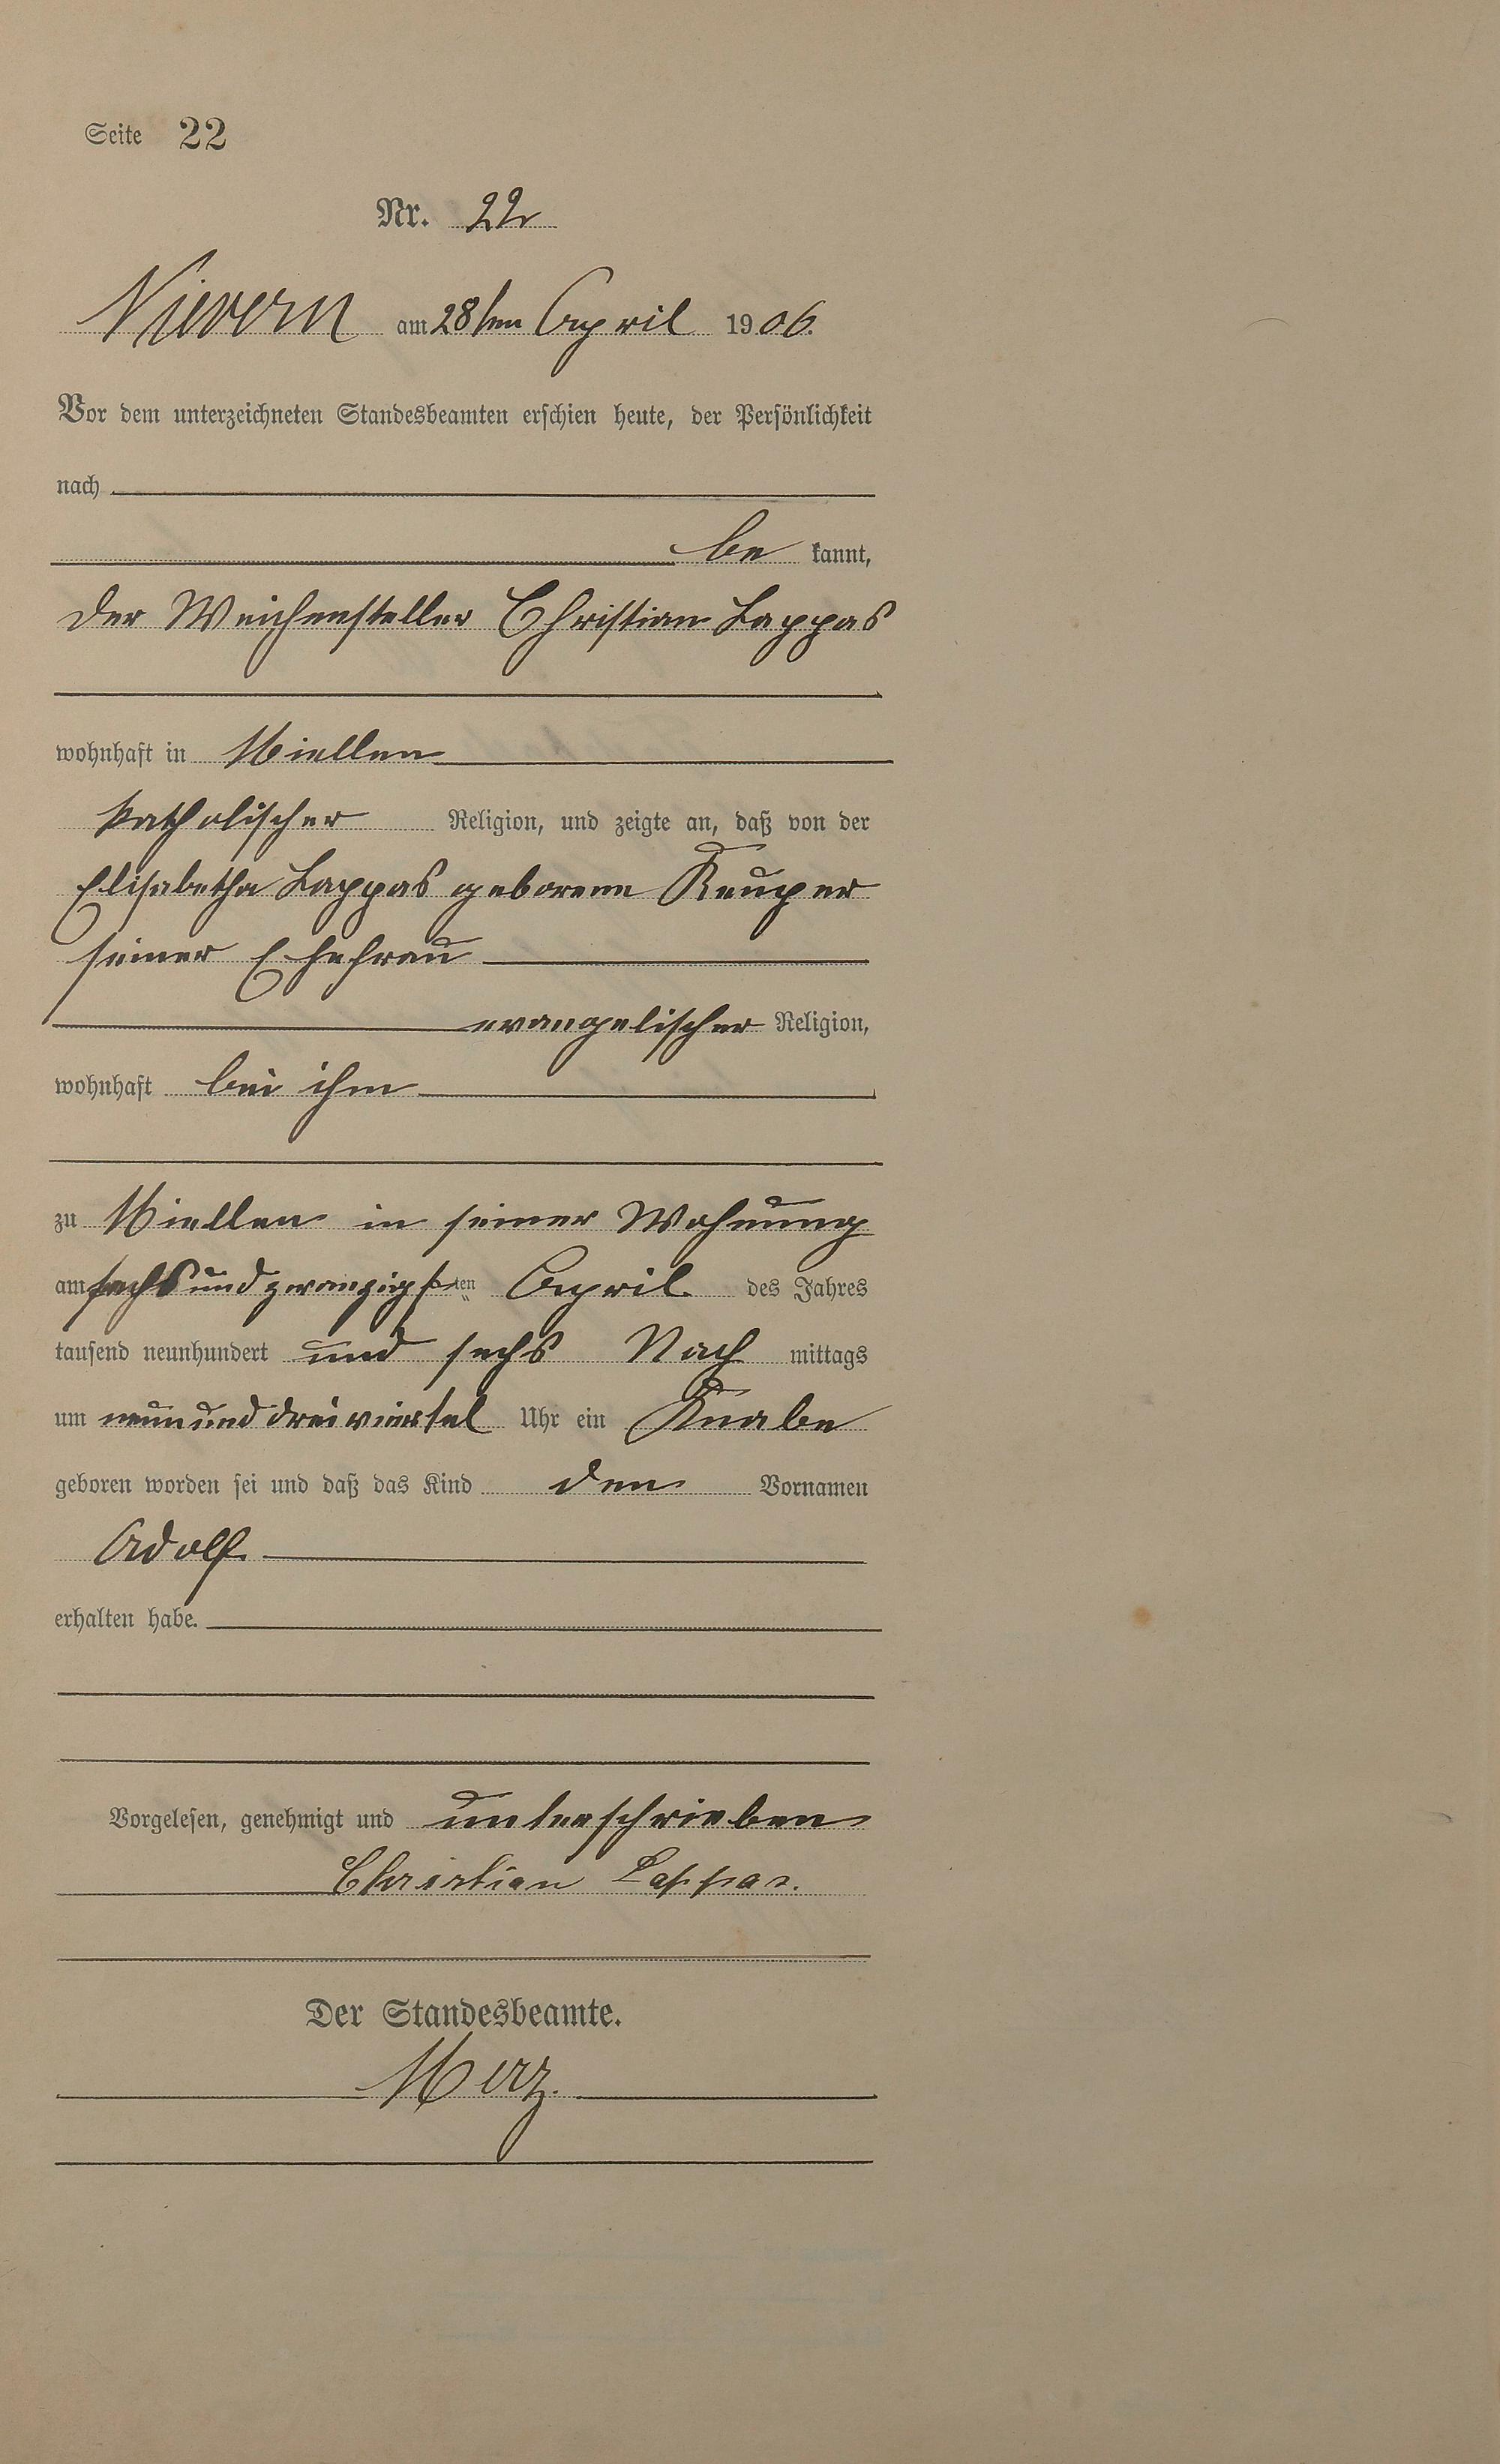 Seite 22
Nr. 22
Nievern am 28ten April 1906.
Vor dem unterzeichneten Standesbeamten erschien heute, der Persönlichkeit
nach
be kannt,
der Weichensteller Christian Lappas
wohnhaft in Miellen
katholischer Religion, und zeigte an, daß von der
Elisabetha Lappas geborene Keuper
seiner Ehefrau
evangelischer Religion,
wohnhaft bei ihm
zu Miellen in seiner Wohnung
am sechsundzwanzigsten April des Jahres
tausend neunhundert und sechs Nach mittags
um neununddreiviertel Uhr ein Knabe
geboren worden sei und daß das Kind den Vornamen
Adolf
erhalten habe.
Vorgelesen, genehmigt und unterschrieben
Christian Lappas.
Der Standesbeamte.
Merz.